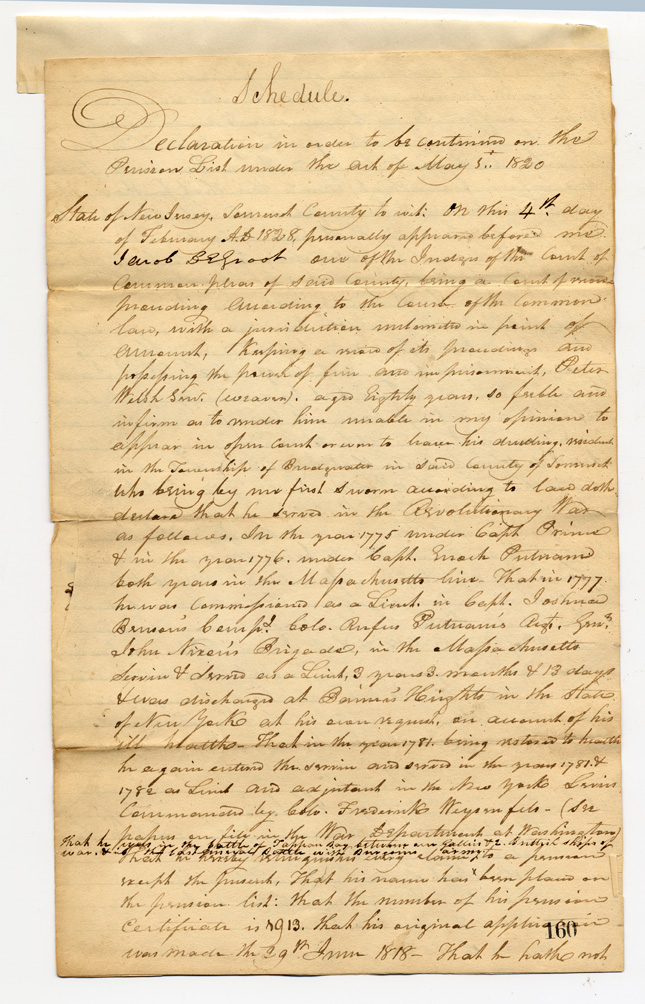 Schedule.
Declaration in order to be continued on the
Pension List under the act of May 1st 1820
State of New Jersey, Somerset County to wit: On this 4th day
of February A.D 1828, personally appeared before me
Jacob DeGroot one of the Judges of the Court of
Common pleas of said County, being a Court of record
proceeding according to the Course of the Common
law, with a jurisdiction unlimited in point of
amount, Keeping a record of its proceedings and
possessing the power of fine and imprisonment, Peter
Welsh Senr. (weaver). aged Eighty years, so feeble and
infirm as to render him unable in my opinion to
appear in open Court or even to leave his dwelling, resident
in the Township of Bridgwater in said County of Somerset
who being by me first sworn according to law doth
declare that he served in the Revolutionary War
as follows. In the year 1775 under Capt Prince
& in the year 1776. under Capt. Enoch Putnam
both years in the Massachusetts line - That in 1777.
he was Commissioned as a Lieut. in Capt. Joshua
Benson's Compy. Colo. Rufus Putnams Regt. Genl.
John Nixons Brigade, in the Massachusetts
Service & Served as a Lieut, 3 years 3. months & 13 days
& was discharged at Heights in the State
of New York at his own request, on account of his
ill health - That in the year 1781. being restored to health
he again entered the service and served in the years 1781. &
1782 as Lieut and adjutant in the New York Levies
Commanded by. Colo. Frederick Weysenfels - (See
papers on file in the War Department at Washington)
that he was in the battle of Tappan Bay between our Gallies & 2 British ships of
war. &
That he hereby relinquishes every claim to a pension
except the present, That his name has been placed on
the pension list: that the number of his pension
Certificate is 1913. that his original application
was made the 29th June 1818 - That he hath not
160